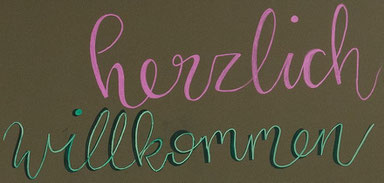 herzlich
willkommen